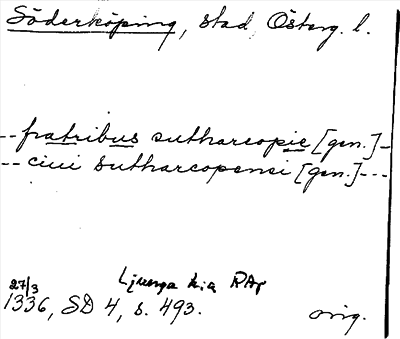 Söderköping, stad, Österg. l.
--fratribus sutharcopie [gen.]-
--ciui sutharcopensi [gen.]---
Ljunga hia RAp
27/3
1336, SD 4, s. 493.
orig.